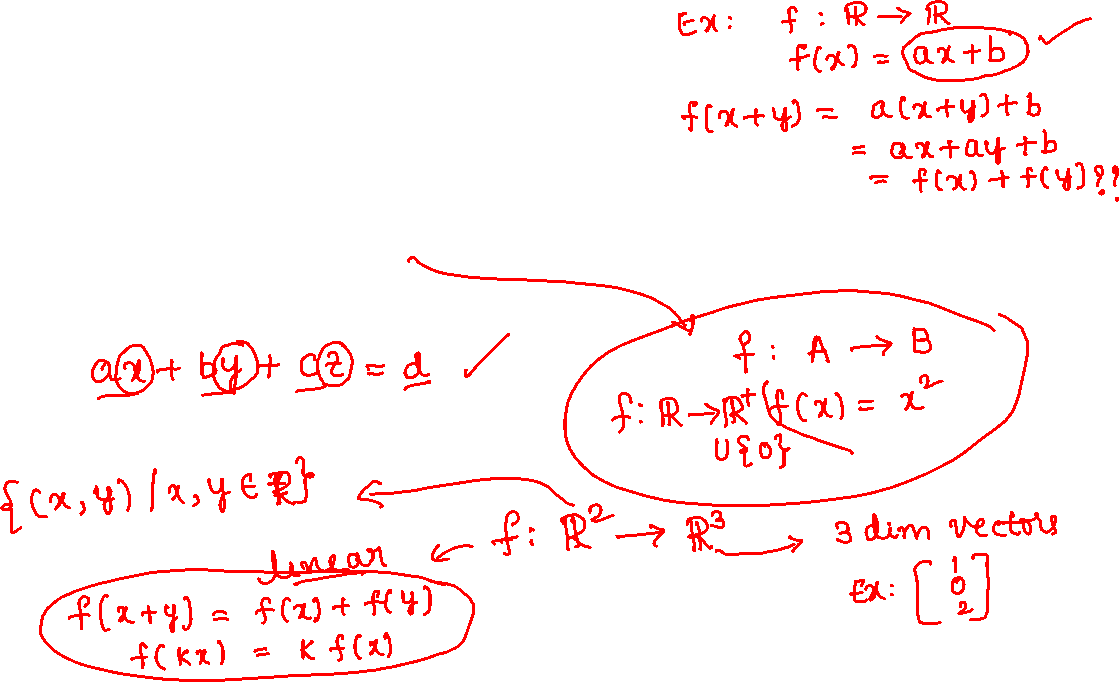 Ex: f : ℝ → ℝ
f(x) = ax+b
f(x+y) = a(x+y)+b
= ax+ay+b
= f(x) + f(y)??
ax + by + cz = d
f : A → B
f: ℝ → ℝ⁺ f(x) = x²
∪{0}
{(x,y) / x,y ∈ ℝ}
f: ℝ² → ℝ³
3 dim vectors
Ex: [1 0 2]
linear
f(x+y) = f(x) + f(y)
f(kx) = k f(x)